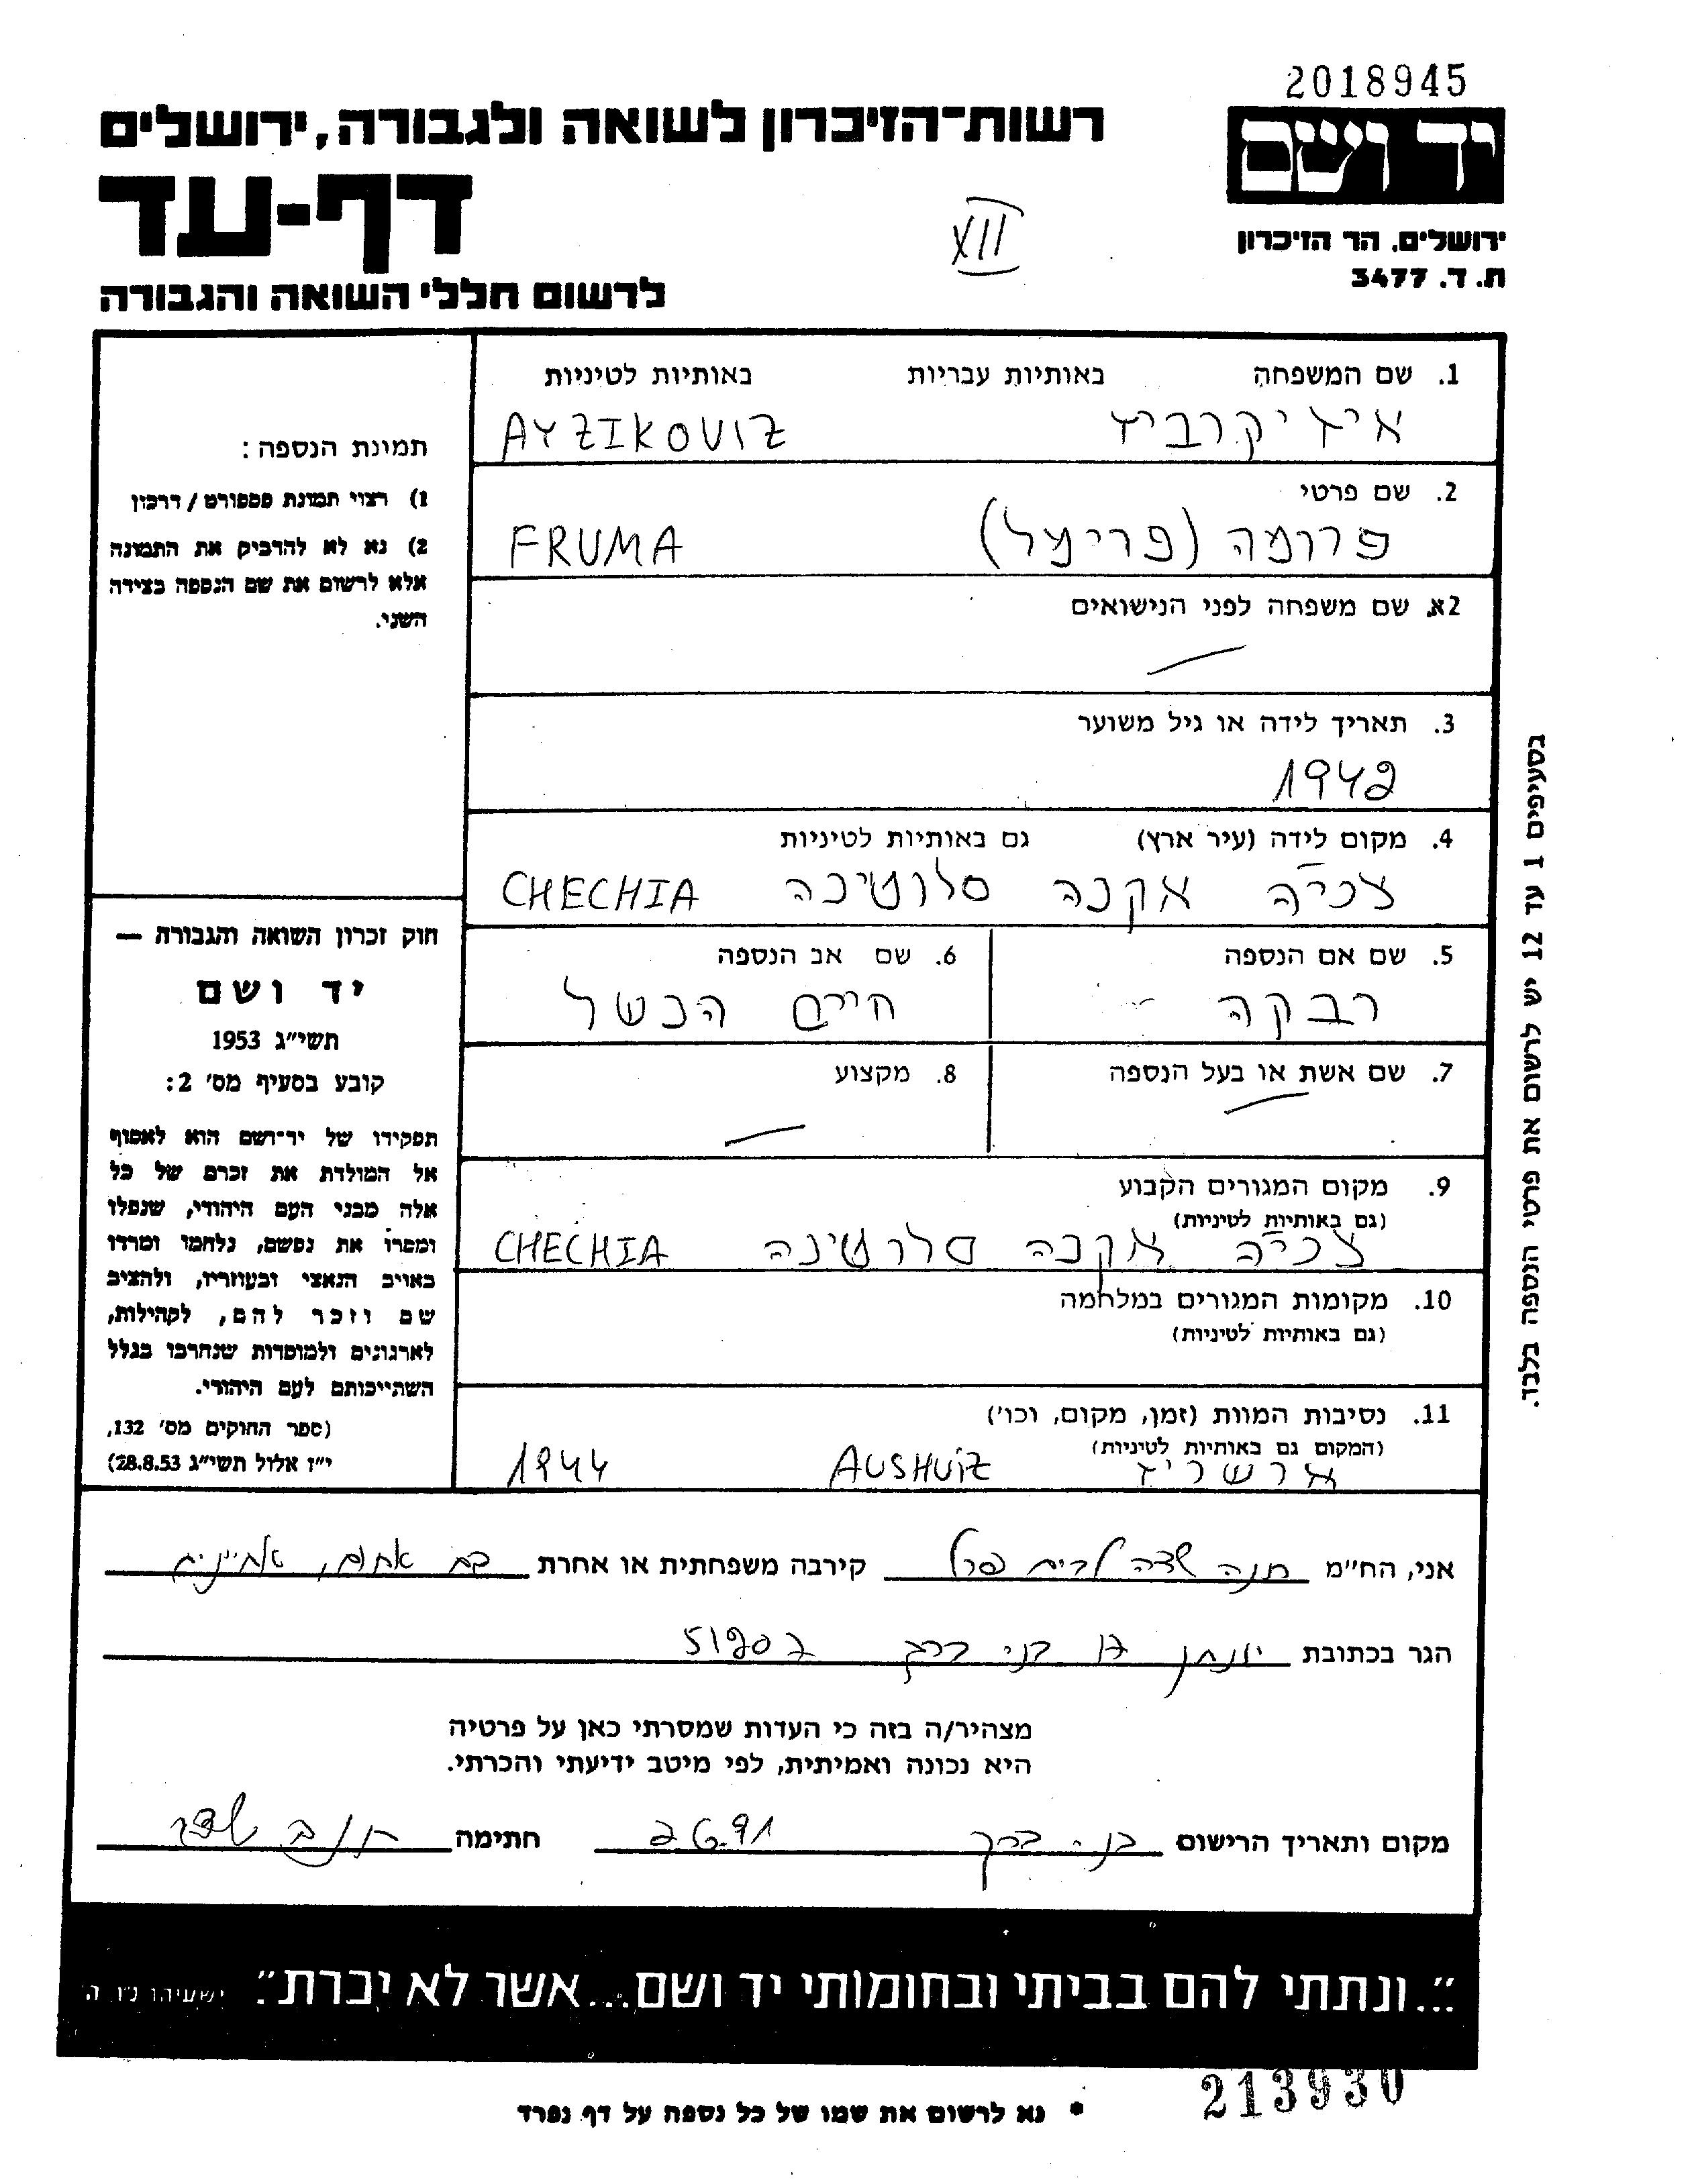 2018945
רשות־הזיכרון לשואה ולגבורה, ירושלים
יד ושם
דף-עד
XII
ירושלים, הר הזיכרון
ת. ד. 3477
לרשום חללי השואה והגבורה
1. שם המשפחה באותיות עבריות באותיות לטיניות
איזיקוביץ AYZIKOVIZ
2. שם פרטי
פרומה (פרימל) FRUMA
2א. שם משפחה לפני הנישואים
3. תאריך לידה או גיל משוער
1942
4. מקום לידה (עיר ארץ) גם באותיות לטיניות
צכיה אקנה סלטינה CHECHIA
5. שם אם הנספה 6. שם אב הנספה
רבקה חיים הנשל
7. שם אשת או בעל הנספה 8. מקצוע
9. מקום המגורים הקבוע
(גם באותיות לטיניות)
צכיה אקנה סלוטינה CHECHIA
10. מקומות המגורים במלחמה
(גם באותיות לטיניות)
11. נסיבות המוות (זמן, מקום, וכו')
(המקום גם באותיות לטיניות)
אושויץ AUSHVIZ 1944
תמונת הנספה:
1) רצוי תמונת פספורט / דרכון
2) נא לא להדביק את התמונה
אלא לרשום את שם הנספה בצידה
השני.
חוק זכרון השואה והגבורה —
יד ושם
תשי״ג 1953
קובע בסעיף מס' 2:
תפקידו של יד־ושם הוא לאסוף
אל המולדת את זכרם של כל
אלה מבני העם היהודי, שנפלו
ומסרו את נפשם, נלחמו ומרדו
באויב הנאצי ובעוזריו, ולהציב
שם וזכר להם, לקהילות,
לארגונים ולמוסדות שנחרבו בגלל
השתייכותם לעם היהודי.
(ספר החוקים מס' 132,
י״ז אלול תשי״ג 28.8.53)
בסעיפים 1 עד 12 יש לרשום את פרטי הנספה בלבד.
אני, הח״מ חנה שדה לבית פרל קירבה משפחתית או אחרת בת אחות, אחיינית
הגר בכתובת יונתן 17 בני ברק 51207
מצהיר/ה בזה כי העדות שמסרתי כאן על פרטיה
היא נכונה ואמיתית, לפי מיטב ידיעתי והכרתי.
מקום ותאריך הרישום בני ברק 2.6.91 חתימה חנה שדה
״...ונתתי להם בביתי ובחומותי יד ושם...אשר לא יכרת״. ישעיהו נ״ו ה'
213930
* נא לרשום את שמו של כל נספה על דף נפרד